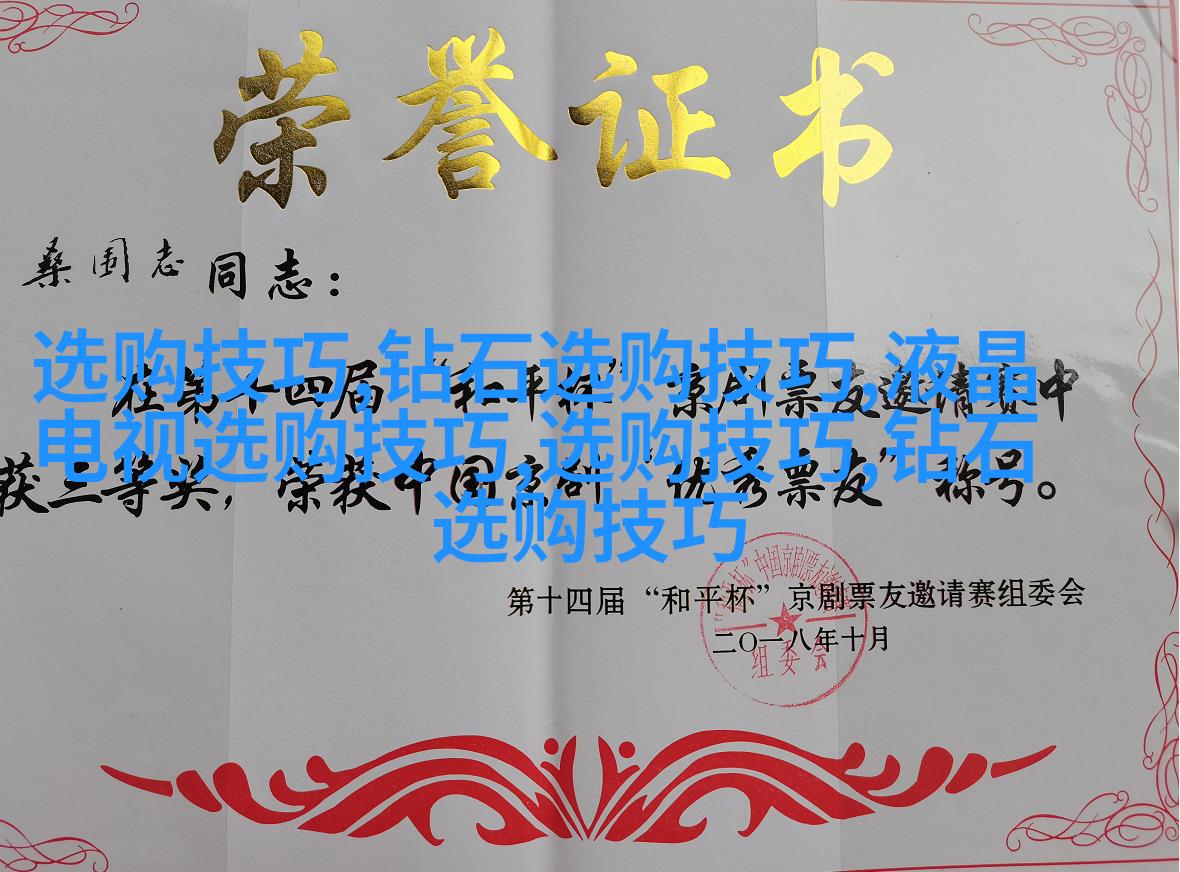 荣誉证书
桑围志 同志：
选购技巧,钻石选购技巧,液晶
在第十四届“和平杯”京剧票友邀请赛中
电视选购技巧,选购技巧,钻石
获三等奖，荣获中国京剧“优秀票友”称号。
选购技巧
第十四届“和平杯”京剧票友邀请赛组委会
二〇一八年十月
组委会